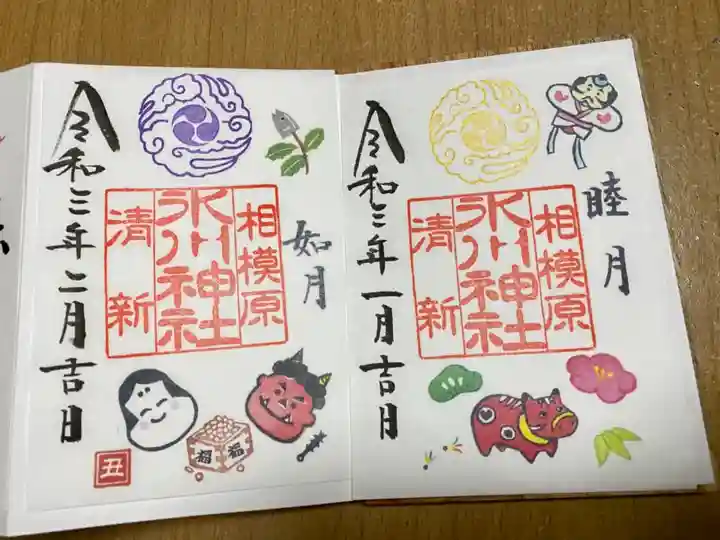 睦月
相模原
氷川神社
清新
令和三年一月吉日
如月
相模原
氷川神社
清新
令和三年二月吉日
福
福
丑